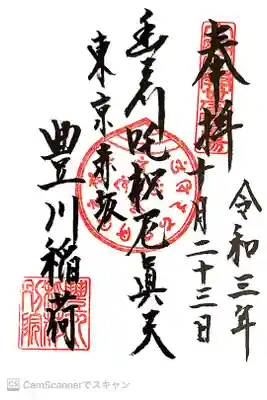 奉拝
令和三年
十月二十三日
豊川吒枳尼真天
東京赤坂
豊川稲荷
CS CamScannerでスキャン